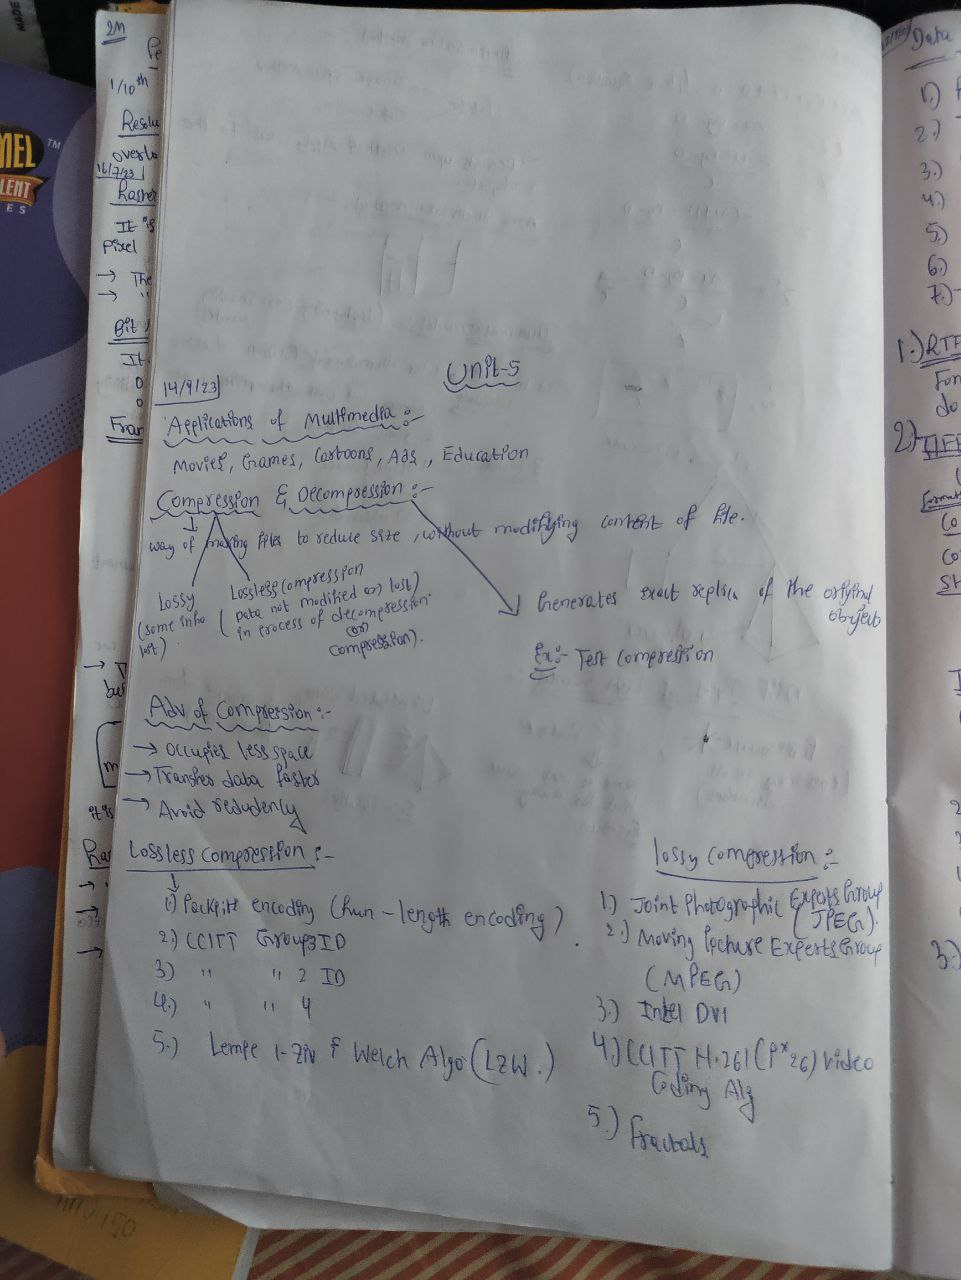 2M
Pe
1/10th
Resolu
overlo
16/7/23
Raster
It is
pixel
→ The
→ "
Bit
It
Fram
MEL
TM
LENT
ES
MADE
Unit-5
14/9/23
Applications of Multimedia :-
Movies, Games, Cartoons, Ads, Education
Compression & Decompression :-
way of making files to reduce size, without modifying content of file.
Lossy
(some info
lost)
Lossless compression
( Data not modified (or) lost)
in process of decompression
(or)
compression).
Generates exact replica of the original
object
Ex:- Test compression
Adv of Compression :-
→ occupies less space
→ Transfer data faster
→ Avoid redudenly
Lossless compression :-
1) Packpitt encoding (hun-length encoding)
2.) CCITT Group3 ID
3.) " " 2 ID
4.) " " 4
5.) Lempe 1-Ziv & Welch Algo (LZW.)
lossy compression :-
1.) Joint Photographic Experts Group
(JPEG).
2.) Moving Pecture Experts Group
(MPEG)
3.) Intel DVI
4.) CCITT H.261 (P*26) Video
Coding Alg
5.) Fractals
Data
1.)
2.)
3.)
4.)
5.)
6.)
7.)
1.) RTF
For
do
2.) TIFF
Format
Co
Co
St
3.)